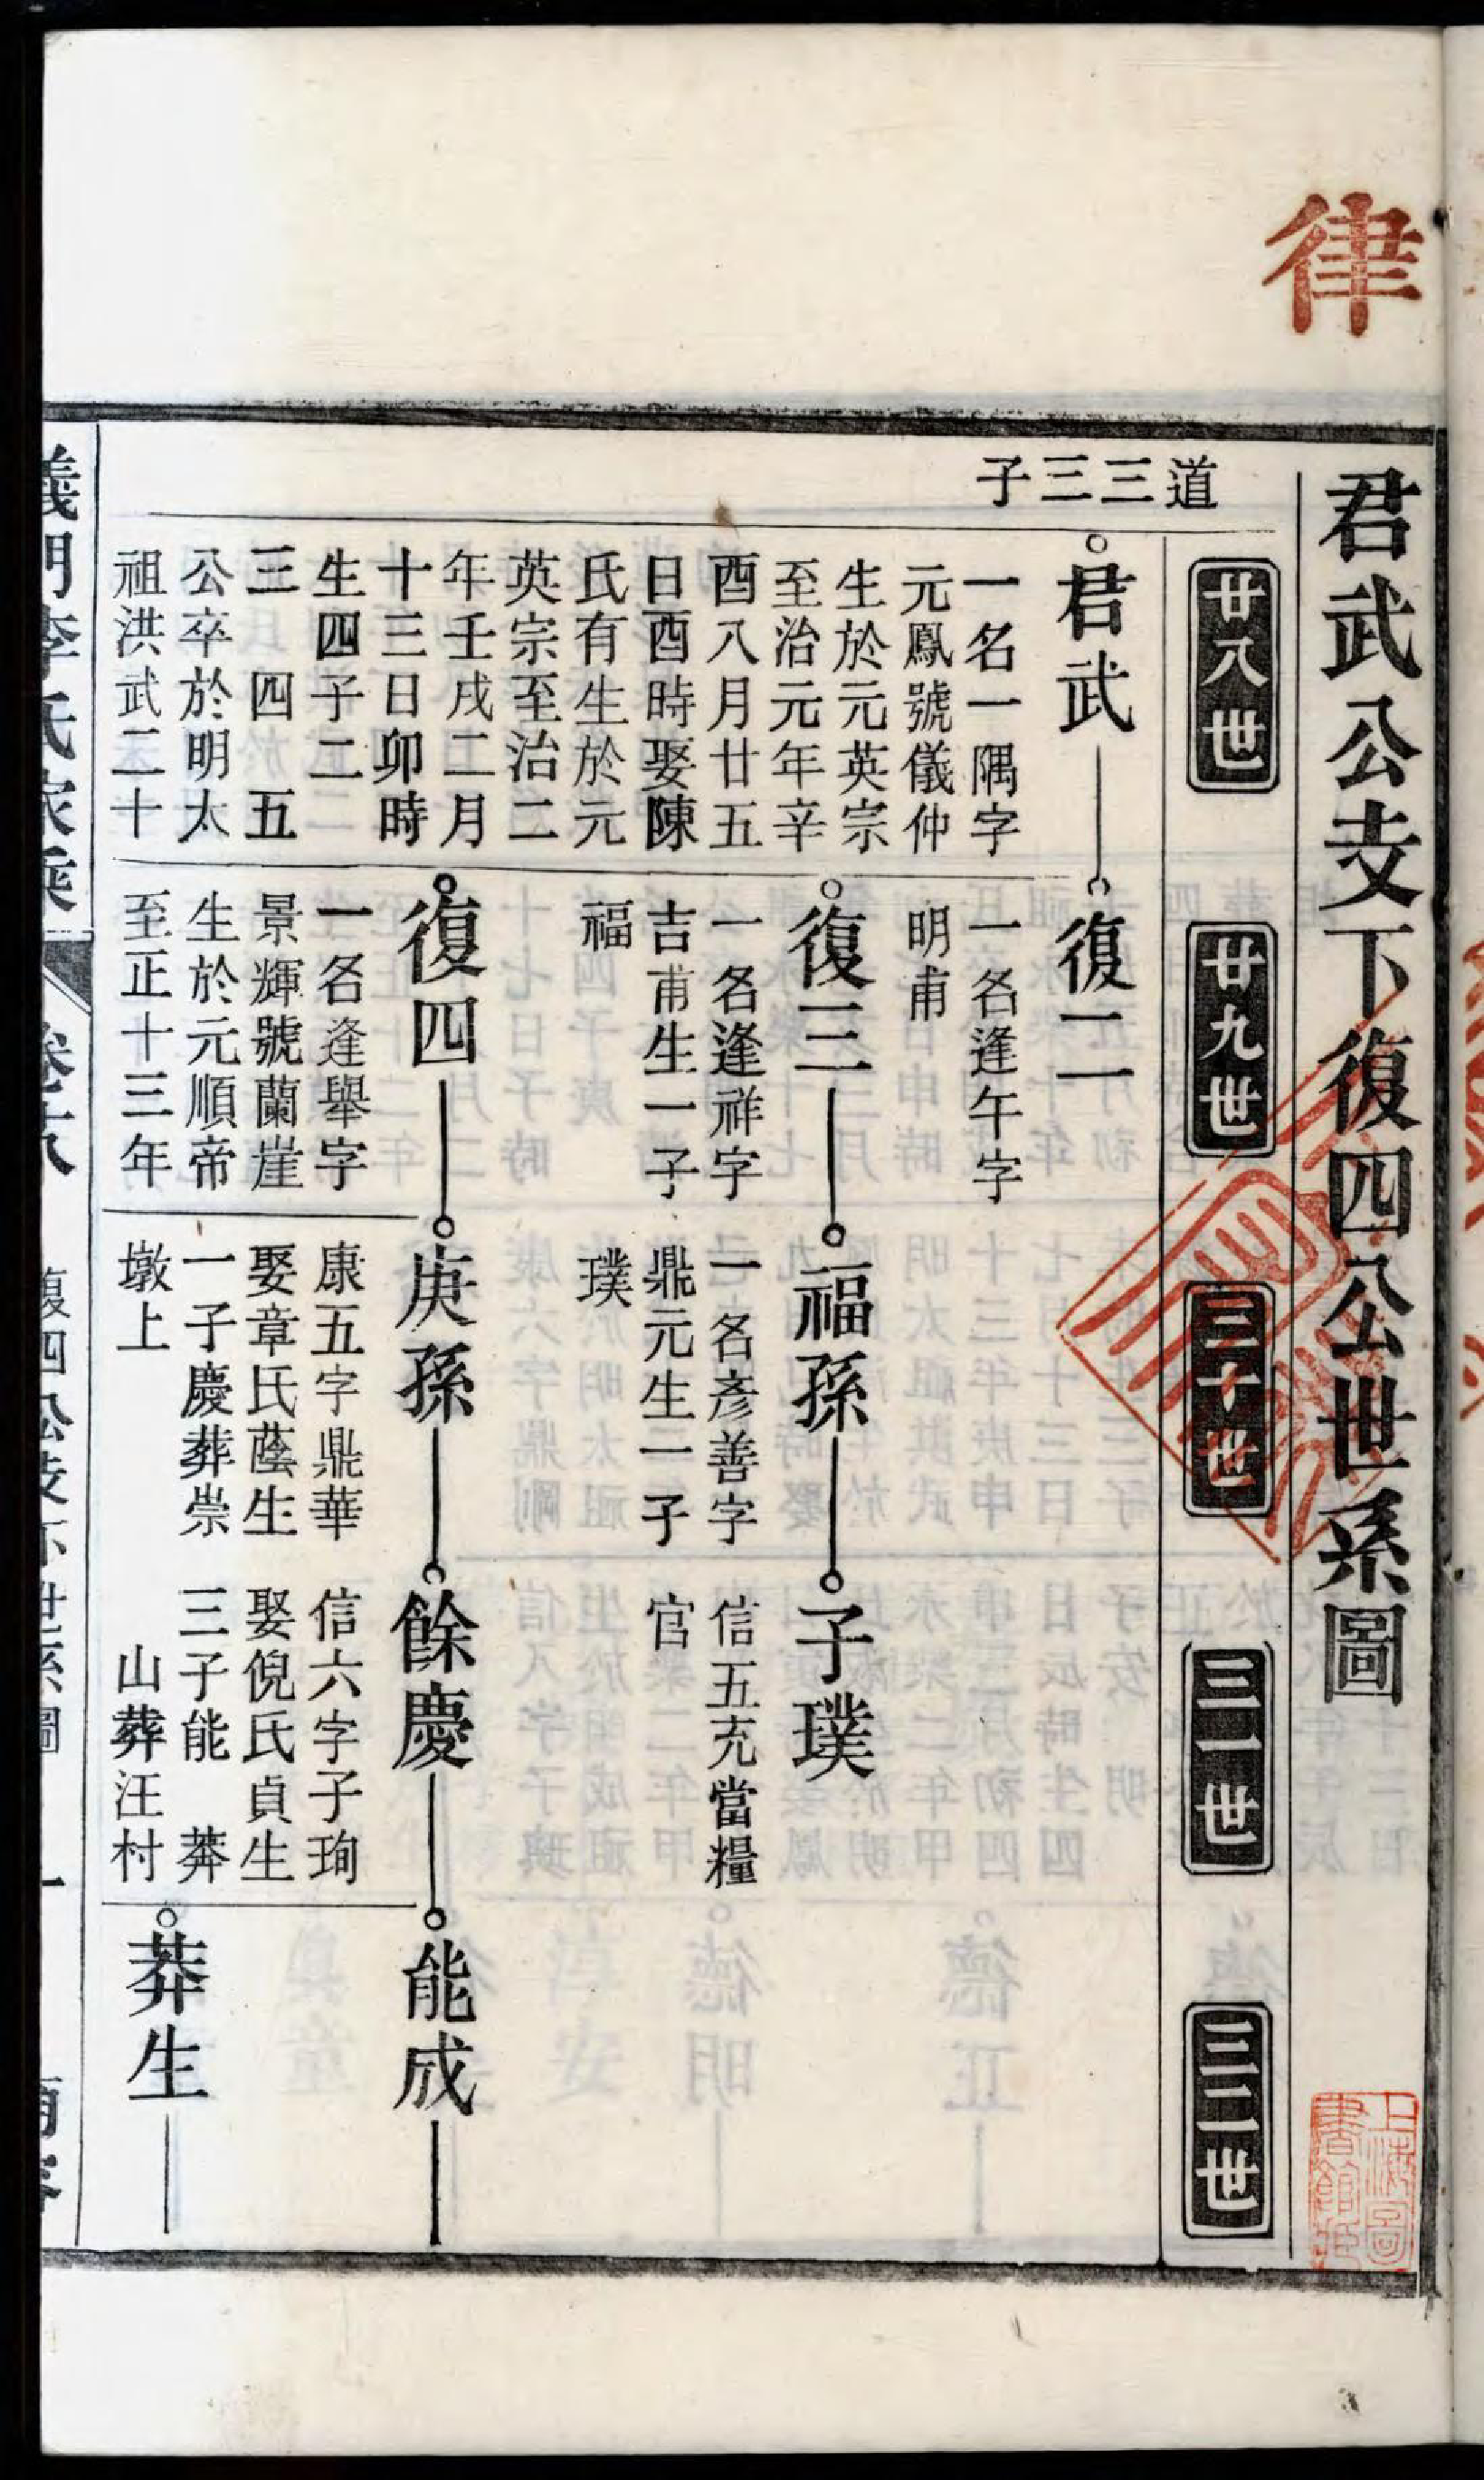 律
君武公支下復四公世系圖
廿八世
廿九世
三十世
三一世
三二世
道三三子
君武
一名一隅字
元鳳號儀仲
生於元英宗
至治元年辛
酉八月廿五
日酉時娶陳
氏有生於元
英宗至治二
年壬戌二月
十三日卯時
生四子二
三 四 五
公卒於明太
祖洪武二十
復二
一名逢午字
明甫
復三
一名逢祥字
吉甫生一子
福
復四
一名逢舉字
景輝號蘭崖
生於元順帝
至正十三年
福孫
一名彥善字
鼎元生一子
璞
庚孫
康五字鼎華
娶章氏蔭生
一子慶葬崇
墩上
子璞
信五充當糧
官
餘慶
信六字子珣
娶倪氏貞生
三子能 莽
山葬汪村
能成
莽生
義門李氏家乘
卷六
復四公支下世系圖
一
上海圖書館藏